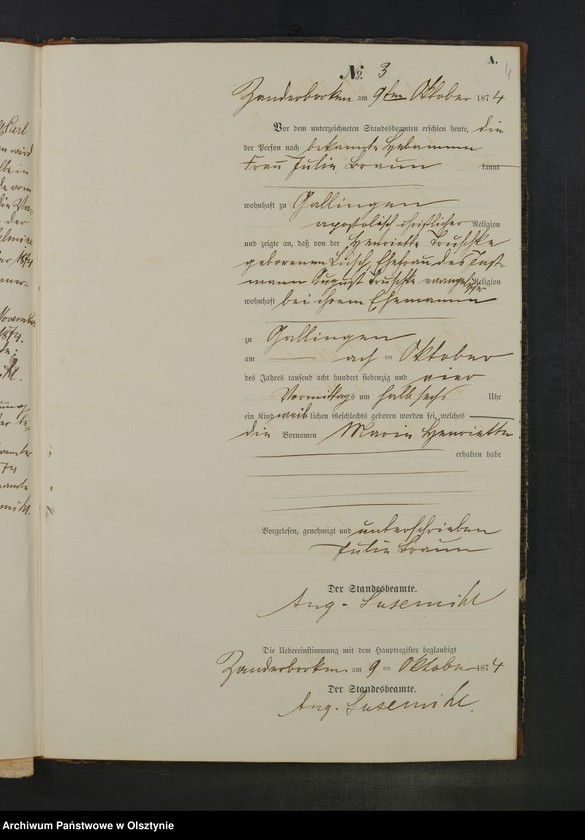 A.
4
№ 3
Zanderborken am 9ten Oktober 1874
Vor dem unterzeichneten Standesbeamten erschien heute, die
der Person nach bekannte Hebamme
Frau Julie Braun kannt
wohnhaft zu Gallingen
apostolisch christlicher Religion
und zeigte an, daß von der Henriette Truschke
geborenen Lusch, Ehefrau des Inst-
mann August Truschke evangelischer Religion
wohnhaft bei ihrem Ehemanne
zu Gallingen
am acht ten Oktober
des Jahres tausend acht hundert siebenzig und vier
Vormittags um halb sechs Uhr
ein Kind weiblichen Geschlechts geboren worden sei, welches
die Vornamen Marie Henriette
erhalten habe
Vorgelesen, genehmigt und unterschrieben
Julie Braun
Der Standesbeamte.
Aug. Susemihl
Die Uebereinstimmung mit dem Hauptregister beglaubigt
Zanderborken am 9 ten Oktober 1874
Der Standesbeamte.
Aug. Susemihl.
Archiwum Państwowe w Olsztynie